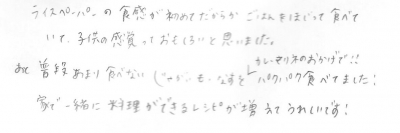 ライスペーパーの食感が初めてだからか ごはんをほじって食べて
いて、子供の感覚っておもしろいと思いました。
カレーマリネのおかげで!!
あと普段あまり食べない じゃがいも・なすを パクパク食べてました!
家で一緒に料理ができるレシピが増えてうれしいです!